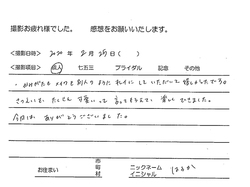 撮影お疲れ様でした。 感想をお願いいたします。
<撮影日時> 2020年 2月 29日( )
<撮影項目> 成人 七五三 ブライダル 記念 その他
かみがたも メイクも 別人のように キレイに していただいて 嬉しかったです。
さつえいも たくさん 可愛いって 言ってもらえて 楽しくできました。
今日は ありがとうございました。
お住まい 市 町 村
ニックネーム イニシャル はるか